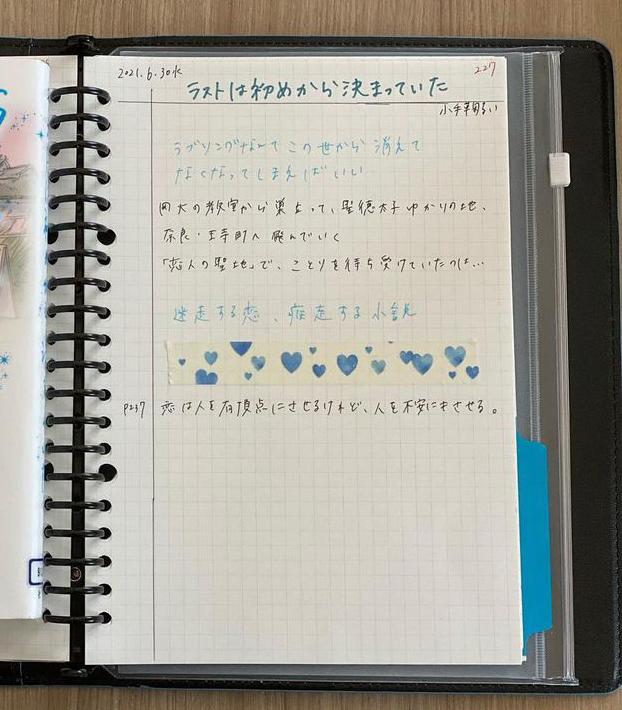 2021.6.30水
227
ラストは初めから決まっていた
小手鞠るい
ラブソングなんてこの世から消えて
なくなってしまえばいい
阿大の教室から巣立って、聖徳太子ゆかりの地、
奈良・王寺町へ飛んでいく
「恋人の聖地」で、ことりを待ち受けていたのは…
迷走する恋、疾走する小説
P237 恋は人を有頂点にさせるけれど、人を不安にもさせる。